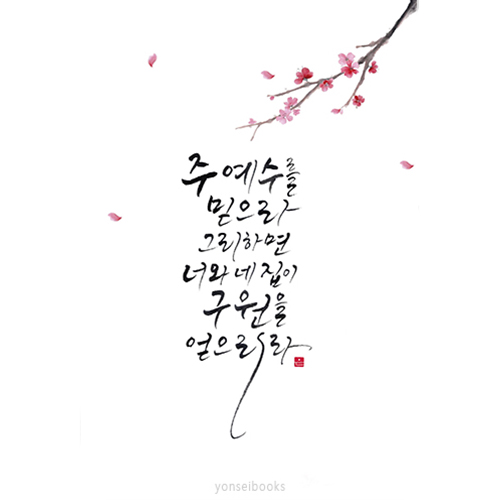 주 예수를
믿으라
그리하면
너와 네 집이
구원을
얻으리라
yonseibooks